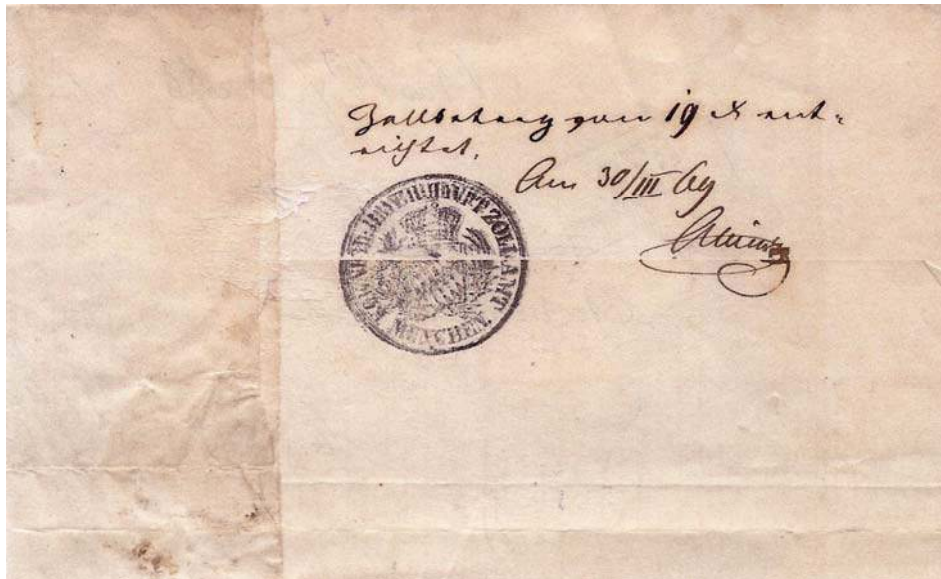 Zollbetrag von 19 x ent-
richtet.
Am 30/III 69
KÖNIGL. BAYER. HAUPTZOLLAMT
MÜNCHEN.